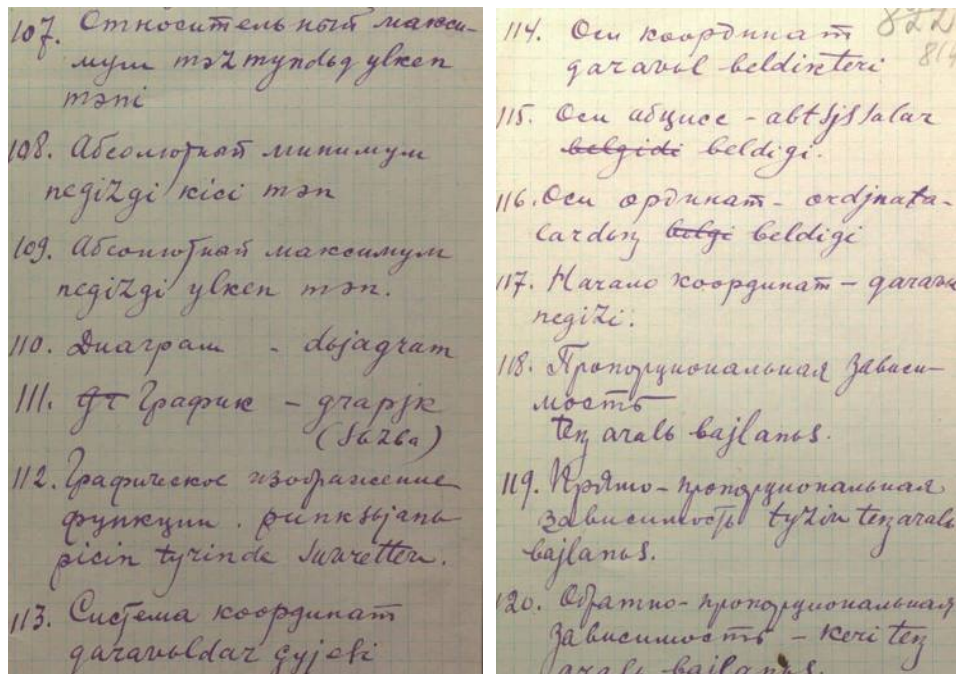 107. Относительный макси-
мум məzmyndьq ylken
məni
108. Абсолютный минимум
negizgi kici mən
109. Абсолютный максимум
negizgi ylken mən.
110. Диаграм - dьjagram
111. График - grapjk
(sьzba)
112. Графическое изображение
функции. punksьjanь
picin tyrinde suvretteu.
113. Система координат
qaravьldar çyjesi
822
814
114. Оси координат
qaravьl beldikteri
115. Оси абцисс - abtsjssalar
belgidi beldigi.
116. Оси ординат - ordjnata-
lardьꞑ belgi beldigi
117. Начало координат - qaravьl
negizi.
118. Пропорциональная зависи-
мость
teꞑ aralь bajlanьs.
119. Прямо-пропорциональная
зависимость tyzin teꞑ aralь
bajlanьs.
120. Обратно-пропорциональная
зависимость - keri teꞑ
aralь bajlanьs.